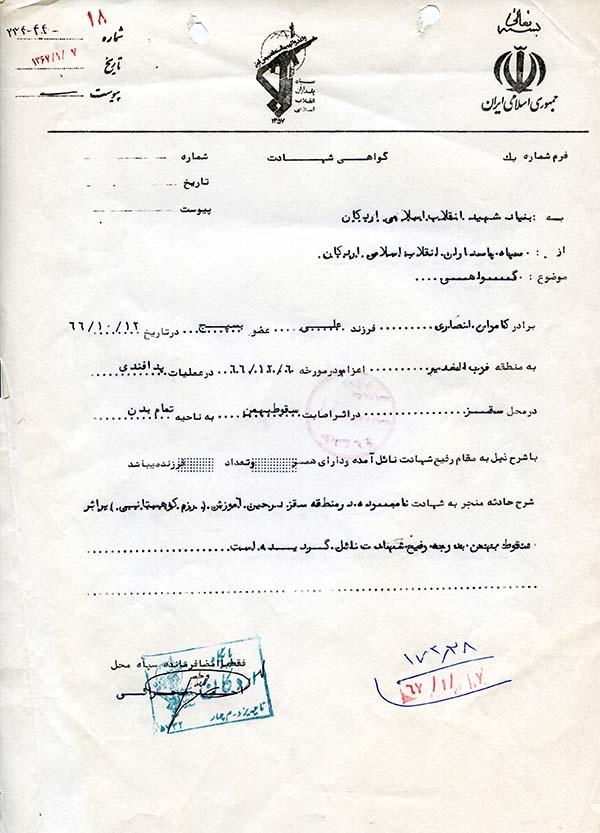 بسمه تعالی
جمهوری اسلامی ایران
سپاه
پاسداران
انقلاب
اسلامی
۱۳۵۷
شماره ۱۸
۲۳۴-۴.۴-
تاریخ ۱۳۶۷/۱/۷
پیوست
فرم شماره یك گواهی شهادت شماره
تاریخ
پیوست
به : بنیاد شهید انقلاب اسلامی اردکان
از : سپاه پاسداران انقلاب اسلامی اردکان
موضوع : گواهی
برادر کامران انصاری فرزند علی عضو بسیج در تاریخ ۶۶/۱۰/۱۲
به منطقه قرب الغدیر اعزام و در مورخه ۶۶/۱۲/۰۶ در عملیات پدافندی
در محل سقز در اثر اصابت سقوط بهمن به ناحیه تمام بدن
با شرح ذیل به مقام رفیع شهادت نائل آمده و دارای همسر و تعداد فرزند میباشد
شرح حادثه منجر به شهادت نامبرده در منطقه سقز در حین آموزش (رزم کوهستانی) براثر
سقوط بهمن به درجه رفیع شهادت نائل گردیده است
فقط با امضا فرمانده سپاه محل
۱۷۲۳۸
۶۷/۱/۱۷